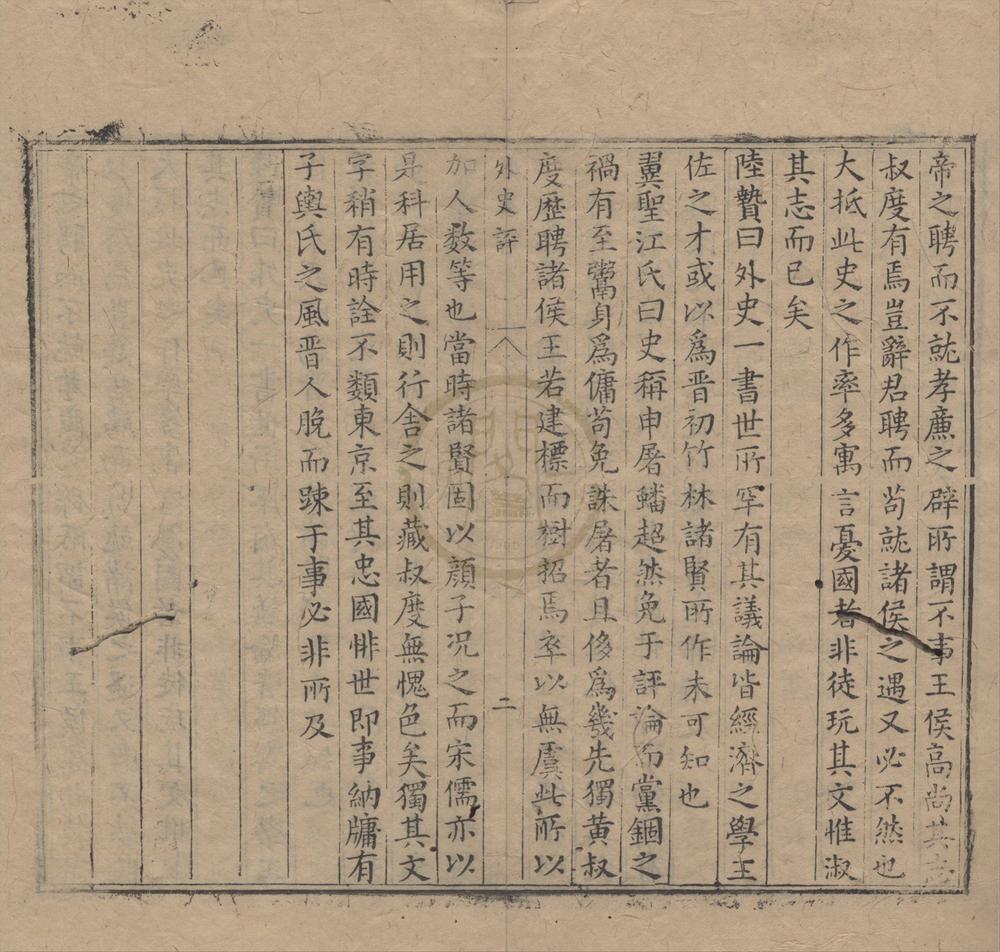 帝之聘而不就孝廉之辟所謂不事王侯高尚其志
叔度有焉豈辭君聘而苟就諸侯之遇又必不然也
大抵此史之作率多寓言憂國者非徒玩其文惟淑
其志而已矣
陸贄曰外史一書世所罕有其議論皆經濟之學王
佐之才或以爲晋初竹林諸賢所作未可知也
翼聖江氏曰史稱申屠蟠超然免于評論而黨錮之
禍有至鬻身爲傭苟免誅屠者且侈爲幾先獨黄叔
度歷聘諸侯王若建標而樹招焉卒以無虞此所以
外史評
二
加人数等也當時諸賢固以顔子况之而宋儒亦以
是科居用之則行舍之則藏叔度無愧色矣獨其文
字稍有時詮不類東京至其忠國悱世即事納牖有
子輿氏之風晋人脫而踈于事必非所及